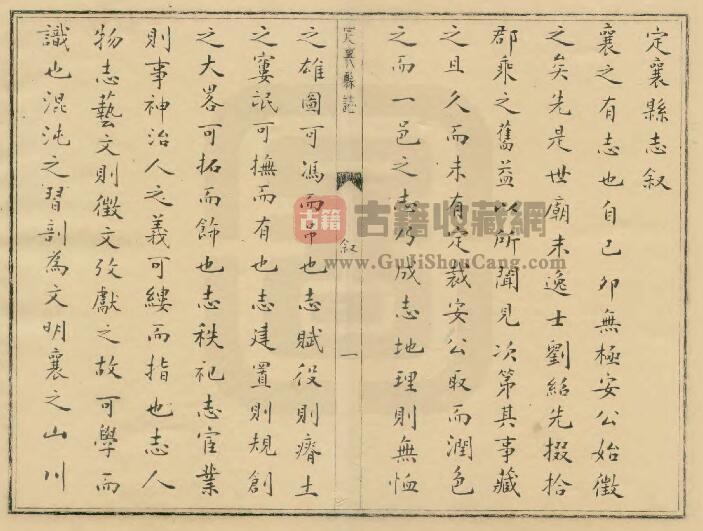 定襄縣志叙
襄之有志也自己卯無極安公始徵
之矣先是世廟末逸士劉紹先掇拾
郡乘之舊益以所聞見次第其事藏
之且久而未有定裁安公取而潤色
之而一邑之志乃成志地理則無恤
定襄縣誌
叙
一
之雄圖可馮而弔也志賦役則瘠土
之窶氓可撫而有也志建置則規創
之大畧可拓而飾也志秩祀志宦業
則事神治人之義可縷而指也志人
物志藝文則徵文攷獻之故可學而
識也混沌之習剖為文明襄之山川
古籍
古籍收藏網
www.GuJiShouCang.com